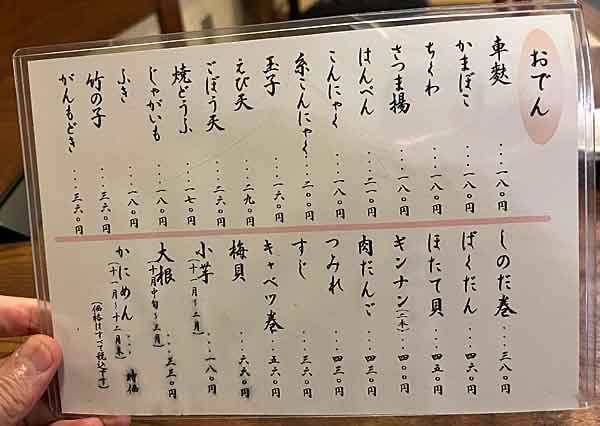 おでん
車麩・・・一八〇円
かまぼこ・・・一八〇円
ちくわ・・・一八〇円
さつま揚・・・一八〇円
はんぺん・・・二一〇円
こんにゃく・・・一八〇円
糸こんにゃく・・・二〇〇円
玉子・・・一六〇円
えび天・・・二九〇円
ごぼう天・・・二六〇円
焼どうふ・・・一七〇円
じゃがいも・・・一八〇円
ふき・・・一八〇円
竹の子・・・三六〇円
がんもどき・・・三六〇円
しのだ巻・・・三八〇円
ばくだん・・・四六〇円
ほたて貝・・・四五〇円
ギンナン(二本)・・・四〇〇円
肉だんご・・・四三〇円
つみれ・・・四三〇円
すじ・・・三六〇円
キャベツ巻・・・五六〇円
梅貝・・・六六〇円
小芋(十一月~二月)・・・一八〇円
大根(十月中旬~三月)・・・三三〇円
かにめん(十一月~十二月末)・・・時価
(価格はすべて税込です)